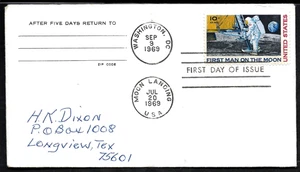 AFTER FIVE DAYS RETURN TO
WASHINGTON, DC
SEP
9
1969
10¢
FIRST MAN ON THE MOON
UNITED STATES
FIRST DAY OF ISSUE
MOON LANDING
JUL
20
1969
USA
H.K. Dixon
P.O Box 1008
Longview, Tex
75601